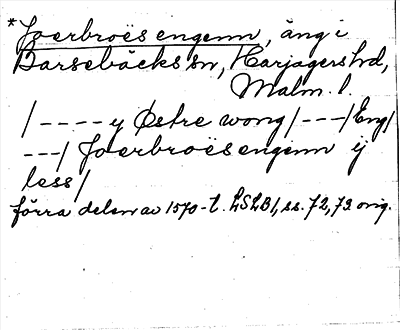 *Joerbroësengenn, äng i
Barsebäcks sn, Harjagers hd,
Malm. l.
/ - - - - y Østre wong / - - - / Eng /
- - - / Joerbroësengenn ij
less /
förra delen av 1570-t. LSLB 1, ss. 72, 73 orig.